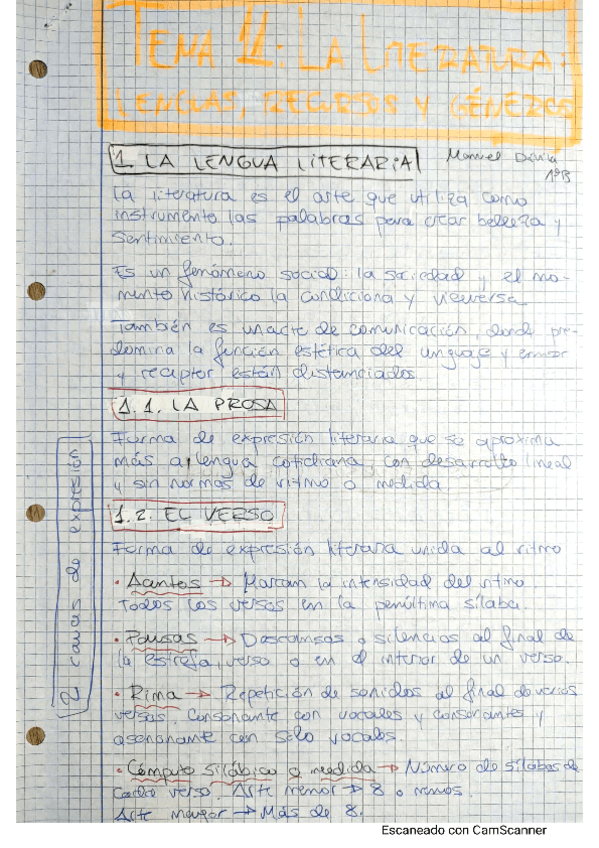 TEMA 11: LA LITERATURA:
LENGUAS, RECURSOS Y GÉNEROS
1. LA LENGUA LITERARIA
Manuel
1ºB
La literatura es el arte que utiliza como
instrumento las palabras para crear belleza y
sentimiento.
Es un fenómeno social: la sociedad y el mo-
mento histórico la condiciona y viceversa
También es un acto de comunicación, donde pre-
domina la función estética del lenguaje y emisor
y receptor están distanciados.
1.1. LA PROSA
Forma de expresión literaria que se aproxima
más a lengua cotidiana, con desarrollo lineal
y sin normas de ritmo o medida
1.2. EL VERSO
Forma de expresión literaria unida al ritmo
· Acentos → Marcan la intensidad del ritmo.
Todos los versos en la penúltima sílaba.
· Pausas → Descansos o silencios al final de
la estrofa, verso o en el interior de un verso.
· Rima → Repetición de sonidos al final de varios
versos. Consonante con vocales y consonantes y
asonante con solo vocales.
· Cómputo silábico o medida → Número de sílabas de
cada verso. Arte menor → 8 o menos.
Arte mayor → Más de 8.
2 cauces de expresión
Escaneado con CamScanner